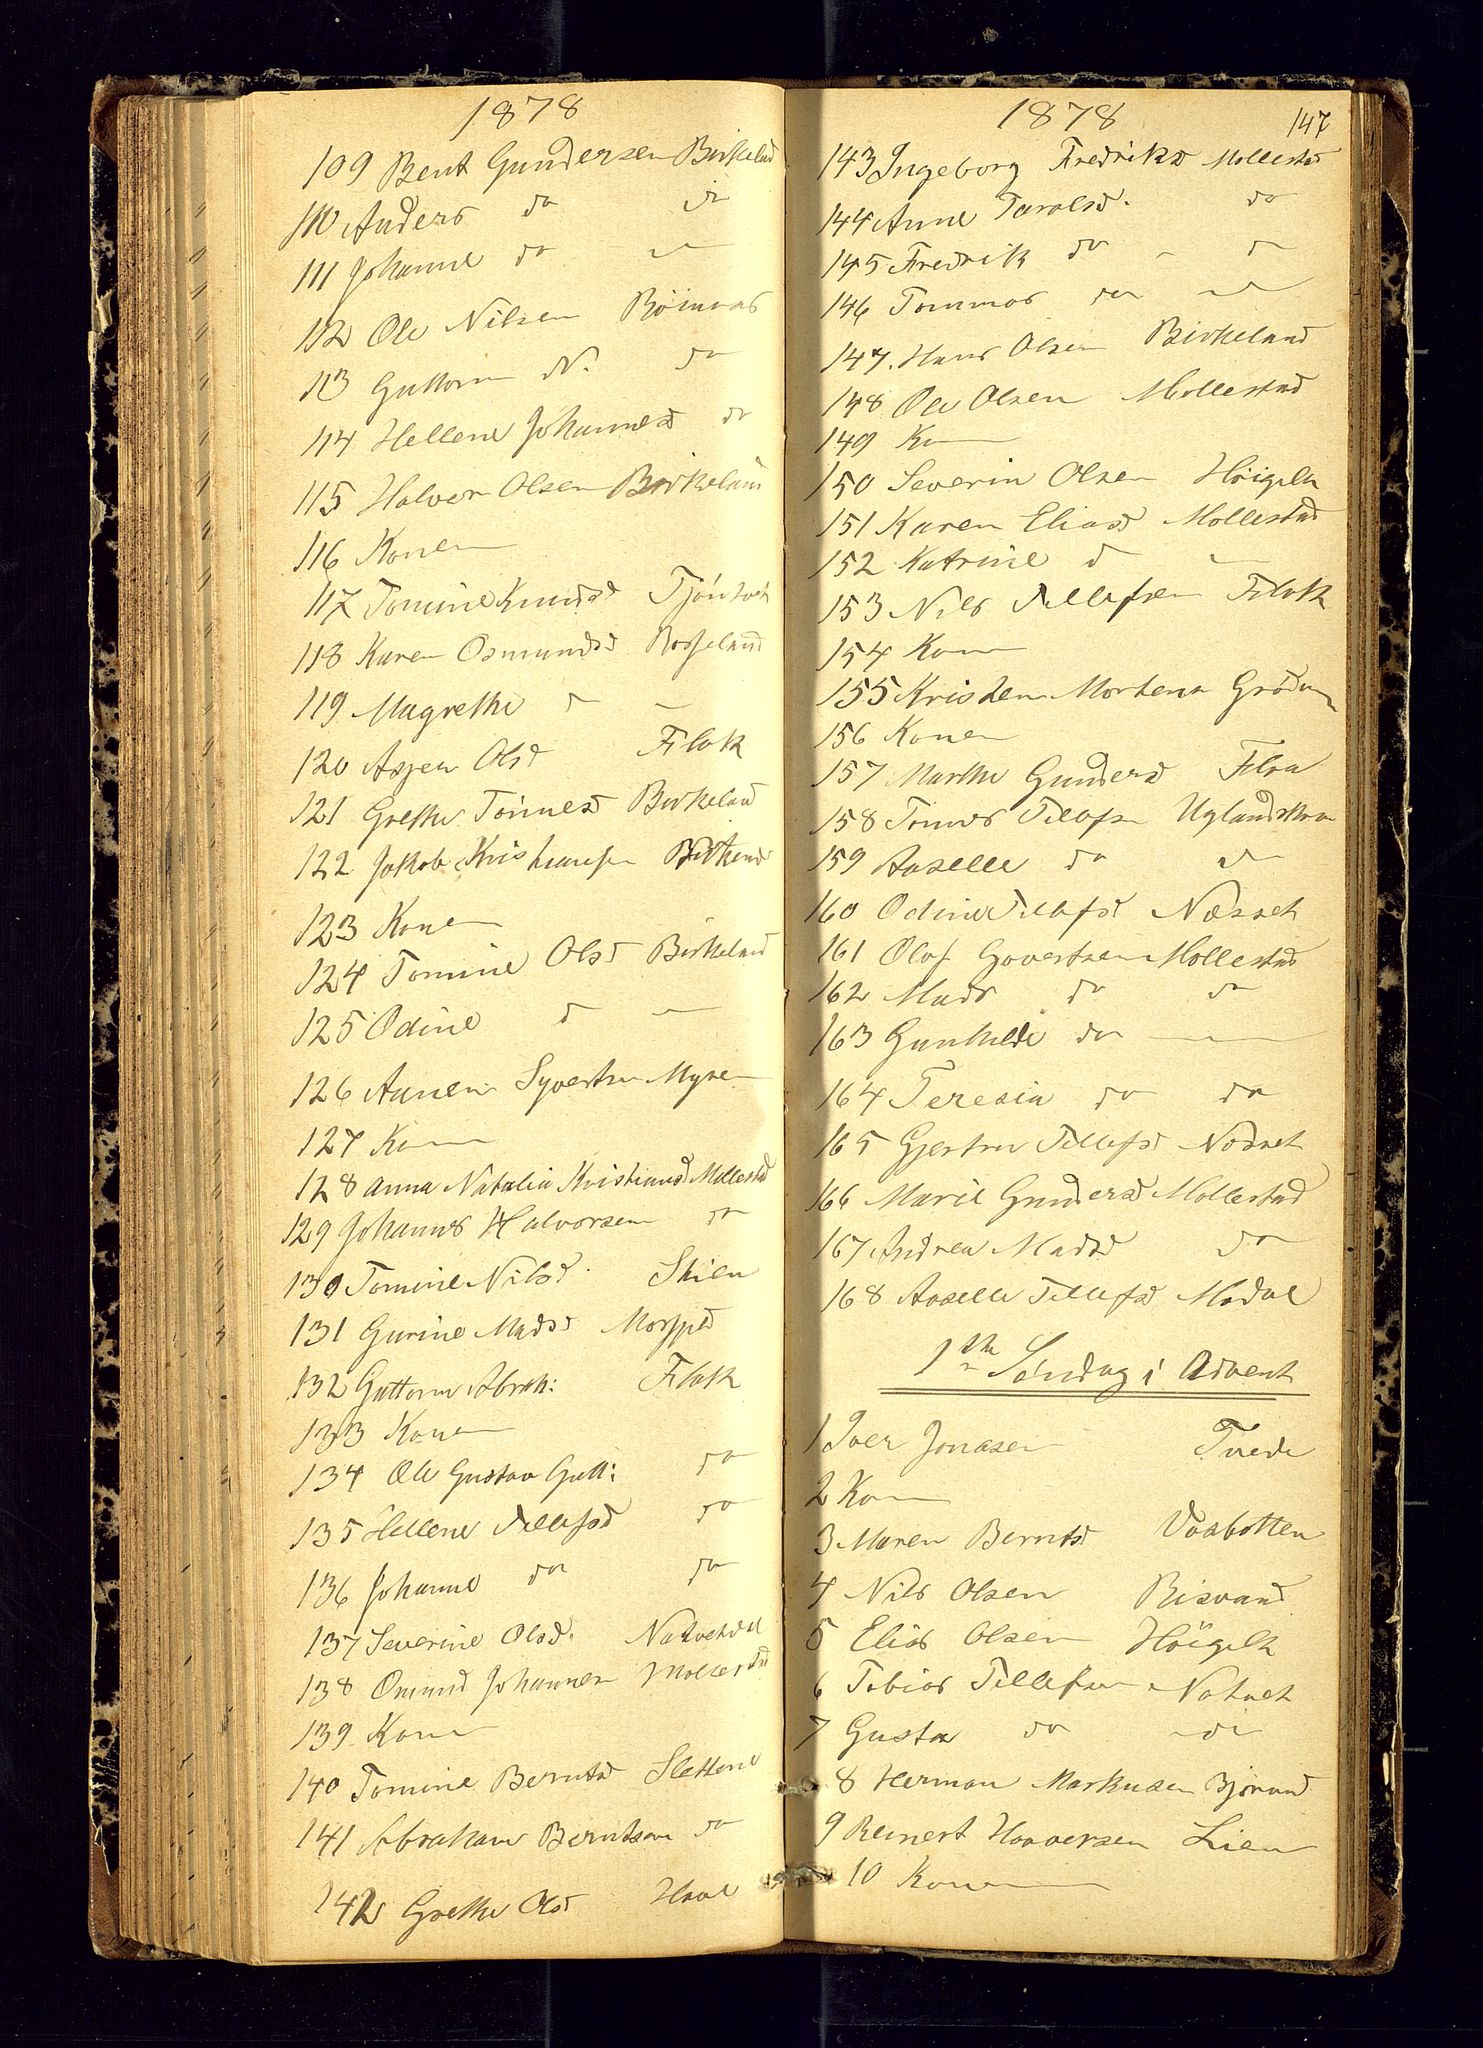 1878
109 Bent Gundersen Birkeland
110 Anders do do
111 Johanne do
112 Ole Nilsen
113 Guttorm N. do
114 Hellene Johannesd do
115 Halvor Olsen Birkeland
116 Konen
117 Tomine Knudsd
118 Karen Osmundsd Rosseland
119 Magrethe d
120 Asjer Olsd Flak
121 Grethe Tönnesd Birkeland
122 Jakob Kristiansen
123 Konen
124 Tomine Olsd Birkeland
125 Odine d
126 Syvertsen Myren
127 Konen
128 Anna Natalia Kristiansd Mollestad
129 Johannes Halvorsen do
130 Tomine Nilsd. Skien
131 Gurine Madsd
132 Guttorm Abrah: Flak
133 Konen
134 Ole Gustav Gutt: do
135 Hellene Tellefsd do
136 Johanne do do
137 Severine Olsd. Natvetdal
138 Omund Johannesen Mollestad
139 Konen
140 Tomine Berntsd Slettene
141 Abraham Berntsen do
142 Grethe Olsd
1878 147
143 Ingeborg Fredriksd Mollestad
144 Anne Taralsd. do
145 Fredrik do d
146 Tommas do
147. Hans Olsen Birkeland
148 Ole Olsen Mollestad
149 Konen
150 Severin Olsen Höigilt
151 Karen Eliasd Mollestad
152 Katrine d
153 Nils Tellefsen Flak
154 Konen
155 Kristen Mortensen
156 Konen
157 Marthe Gundersd
158 Tönnes Tellefsen
159 Aaselle do do
160 Odine Tellefsd Næsset
161 Olaf Govertsen Mollestad
162 Mads do do
163 Gunhilde do
164 Teresia do do
165 Gjertru Tellefsd
166 Marie Gundersd Mollestad
167 Andrea Madsd do
168 Aaselle Tellefsd Modal
1ste Söndag i Advent
1 Iver Jonasen Tvede
2 Konen
3 Maren Berntsd Vasbotten
4 Nils Olsen Risvand
5 Elias Olsen Höigilt
6 Tobias Tellefsen Natvet
7 Gustav do do
8 Herman Markusen
9 Reinert Haaversen Lien
10 Konen